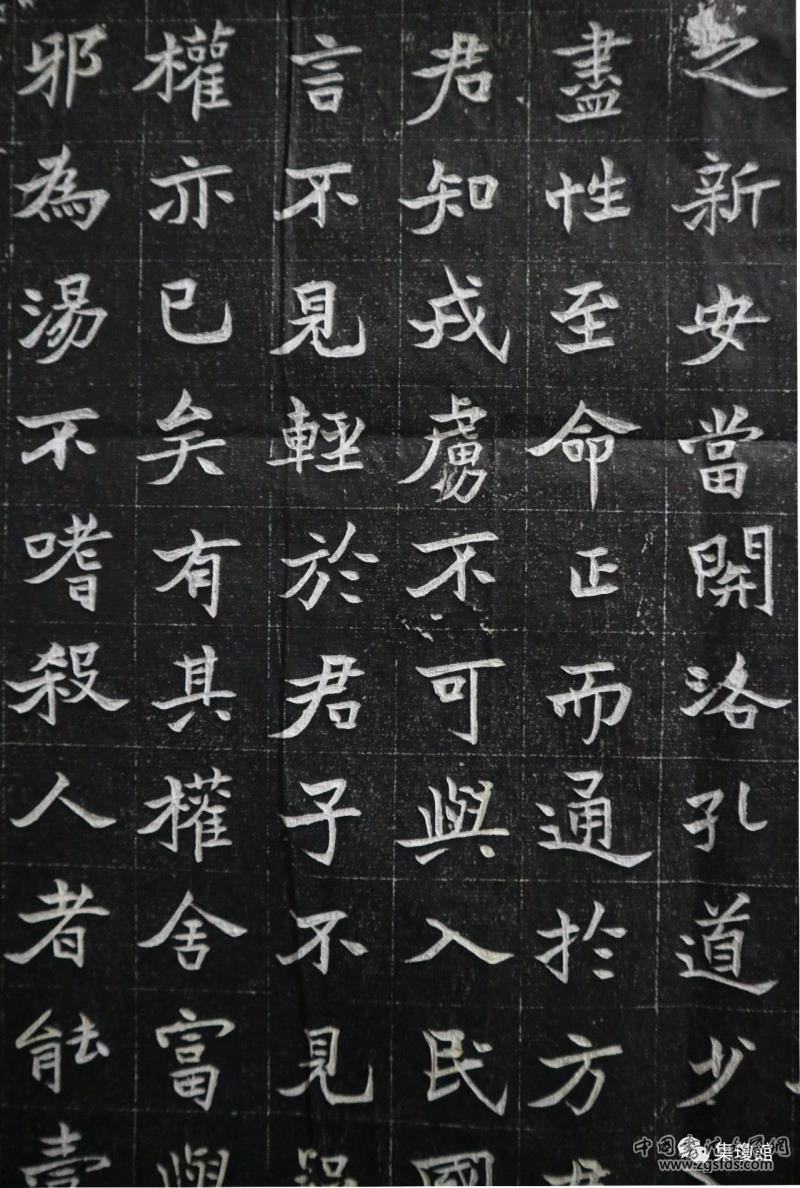 之新安當開洛孔道少
盡性至命正而通於方
君知戎虜不可與入民國
言不見輕於君子不見
權亦已矣有其權舍富與
邪為湯不嗜殺人者能壹
集瓊館
www.zgsfds.com